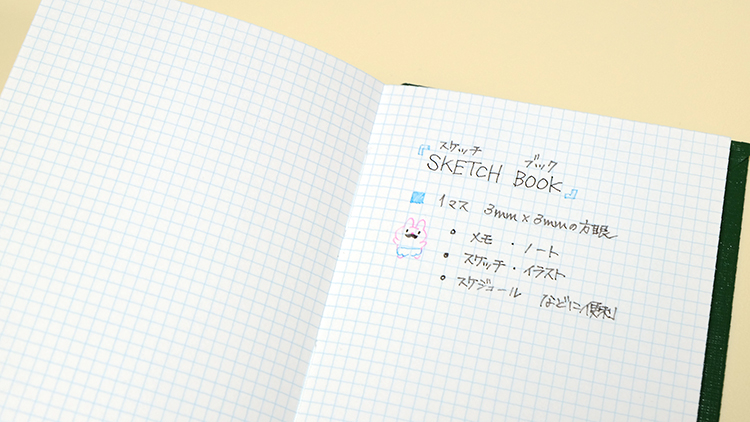 スケッチ ブック
『SKETCH BOOK』
1マス 3mm×3mmの方眼
• メモ ・ ノート
• スケッチ・イラスト
• スケジュール などに便利